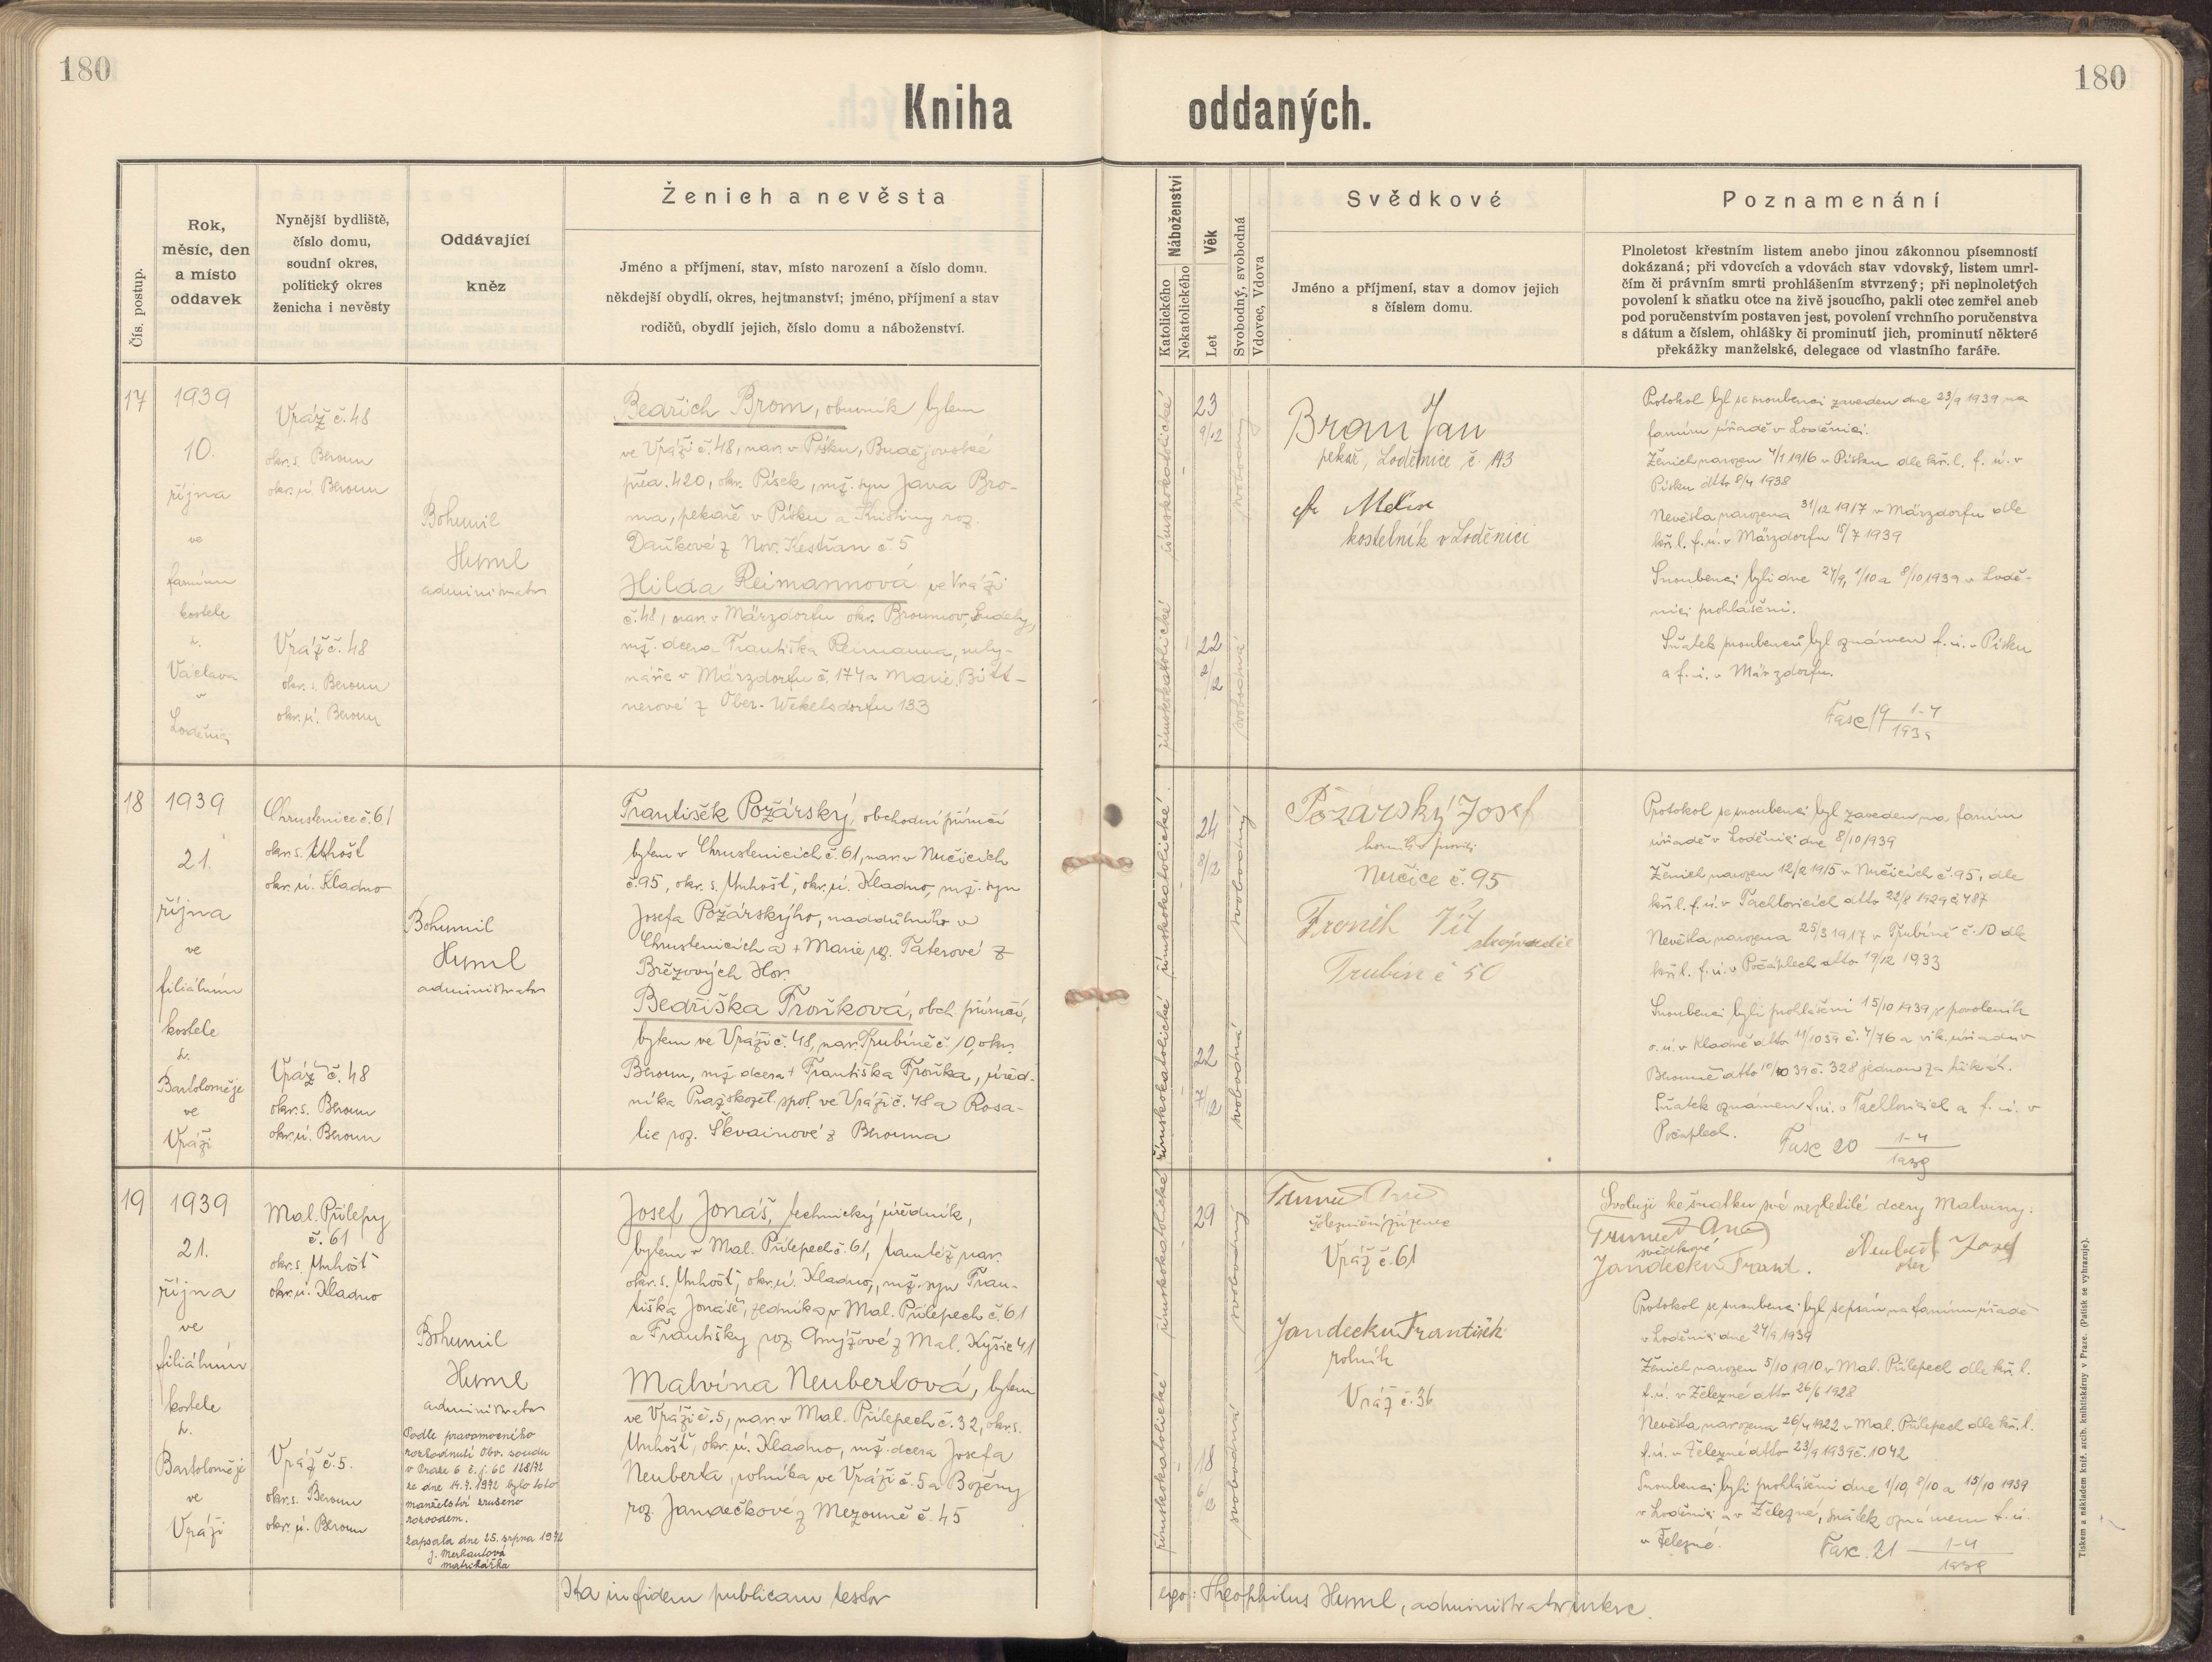 180
180
Kniha oddaných.
Čís. postup.
Rok,
měsíc, den
a místo
oddavek
Nynější bydliště,
číslo domu,
soudní okres,
politický okres
ženicha i nevěsty
Oddávající
kněz
Ženich a nevěsta
Jméno a příjmení, stav, místo narození a číslo domu.
někdejší obydlí, okres, hejtmanství; jméno, příjmení a stav
rodičů, obydlí jejich, číslo domu a náboženství.
Náboženství
Katolického
Nekatolického
Věk
Let
Svobodný, svobodná
Vdovec, Vdova
Svědkové
Jméno a příjmení, stav a domov jejich
s číslem domu.
Poznamenání
Plnoletost křestním listem anebo jinou zákonnou písemností
dokázaná; při vdovcích a vdovách stav vdovský, listem umrl-
čím či právním smrti prohlášením stvrzený; při neplnoletých
povolení k sňatku otce na živě jsoucího, pakli otec zemřel aneb
pod poručenstvím postaven jest, povolení vrchního poručenstva
s dátum a číslem, ohlášky či prominutí jich, prominutí některé
překážky manželské, delegace od vlastního faráře.
17
1939
10.
října
ve
farním
kostele
sv.
Václava
v
Loděnici
Vráž č. 48
okr. s. Beroun
okr. ú. Beroun
Vráž č. 48
okr. s. Beroun
okr. ú. Beroun
Bohumil
Huml
administrator
Bedřich Brom, obuvník bytem
ve Vráži č. 48, nar. v Písku, Budějovické
před. 420, okr. Písek, mž. syn Jana Bro-
ma, pekaře v Písku a Kristiny roz.
Daňkové z Nov. Kestřan č. 5
Hilda Reimannová ve Vráži
č. 48, nar. v Märzdorfu okr. Broumov, Sudety,
mž. dcera Františka Reimanna, mly-
náře v Märzdorfu č. 174 a Marie Bitt-
nerové z Ober-Wekelsdorfu 133
římskokatolické
římskokatolické
23
9/12
22
9/12
svobodný
svobodná
Brom Jan
pekař, Loděnice č. 143
kostelník v Loděnici
Protokol byl se snoubenci zaveden dne 23/9 1939 na
farním úřadě v Loděnici.
Ženich narozen 4/1 1916 v Písku dle kř. l. f. ú. v
Písku dtto 8/4 1938
Nevěsta narozena 31/12 1917 v Märzdorfu dle
kř. l. f. ú. v Märzdorfu 15/7 1939
Snoubenci byli dne 24/9, 1/10 a 8/10 1939 v Lodě-
nici prohlášeni.
Sňatek snoubenců byl oznámen f. ú. v Písku
a f. ú. v Märzdorfu.
Fasc 19 1-4
1939
18
1939
21.
října
ve
filiálním
kostele
sv.
Bartoloměje
ve
Vráži
Chrustenice č. 61
okr. s. Unhošť
okr. ú. Kladno
Vráž č. 48
okr. s. Beroun
okr. ú. Beroun
Bohumil
Huml
administrator
František Požárský, obchodní příručí
bytem v Chrustenicích č. 61, nar. v Nučicích
č. 95, okr. s. Unhošť, okr. ú. Kladno, mž. syn
Josefa Požárskýho, naddůlního v
Chrustenicích a + Marie roz. Taterové z
Březových Hor
Bedřiška Froňková, obch. příručí,
bytem ve Vráži č. 48, nar. Trubíně č. 10, okr.
Beroun, mž. dcera + Františka Froňka, úřed-
níka Praž. žel. spol. ve Vráži č. 48 a Rosa-
lie roz. Škvainové z Berouna
římskokatolické
římskokatolické
24
8/12
22
7/12
svobodný
svobodná
Požárský Josef
Nučice č. 95
Froněk Vít
strojvůdce
Trubín č 50
Protokol se snoubenci byl zaveden na farním
úřadě v Loděnici dne 8/10 1939
Ženich narozen 12/2 1915 v Nučicích č. 95, dle
kř. l. f. ú. v Tachlovicích dtto 22/8 1929 č 487
Nevěsta narozena 25/3 1917 v Trubíně č. 10 dle
kř. l. f. ú. v Počáplech dtto 19/12 1933
Snoubenci byli prohlášeni 15/10 1939 s povolením
o. ú. v Kladně dtto 11/10 39 č. 4/76 a vik. úřadu v
Berouně dtto 10/10 39 č. 328 jednou za třikrát.
Sňatek oznámen f. ú. v Tachlovicích a f. ú. v
Počáplech.
Fasc 20 1-4
1939
19
1939
21.
října
ve
filiálním
kostele
sv.
Bartoloměje
ve
Vráži
Mal. Přílepy
č. 61
okr. s. Unhošť
okr. ú. Kladno
Vráž č. 5.
okr. s. Beroun
okr. ú. Beroun
Bohumil
Huml
administrator
Podle pravomocného
rozhodnutí Obv. soudu
v Praze 6 č. j. 6C 128/72
ze dne 14. 7. 1972 bylo toto
manželství zrušeno
rozvodem.
Zapsala dne 25. srpna 1972
J. Merhautová
matrikářka
Josef Jonáš, technický úředník,
bytem v Mal. Přílepech č. 61, tamtéž nar.
okr. s. Unhošť, okr. ú. Kladno, mž. syn Fran-
tiška Jonáše, zedníka v Mal. Přílepech č. 61
a Františky roz. Chmýžové z Mal. Kyšic 41
Malvína Neubertová, bytem
ve Vráži č. 5, nar. v Mal. Přílepech č. 32, okr. s.
Unhošť, okr. ú. Kladno, mž. dcera Josefa
Neuberta, rolníka ve Vráži č. 5 a Boženy
roz. Jandečkové z Mezouně č. 45
římskokatolické
římskokatolické
29
18
svobodný
svobodná
železniční zřízenec
Vráž č. 61
Jandečka František
rolník
Vráž č. 36
Svoluji ke sňatku své nezletilé dcery Malviny:
svědkové
Jandečka Frant.
Neubert Josef
otec
Protokol se snoubenci byl sepsán na farním úřadě
v Loděnici dne 24/9 1939
Ženich narozen 5/10 1910 v Mal. Přílepech dle kř. l.
f. ú. v Železné dtto 26/6 1928
Nevěsta narozena 26/4 1922 v Mal. Přílepech dle kř. l.
f. ú. v Železné dtto 23/9 1939 č. 1042
Snoubenci byli prohlášeni dne 1/10, 8/10 a 15/10 1939
v Loděnici a v Železné, sňatek oznámen f. ú.
v Železné.
Fasc. 21 1-4
1939
Ita in fidem publicam testor
ego: Theophilus Huml, administrator
Tiskem a nákladem kníž. arcib. knihtiskárny v Praze. (Patisk se vyhrazuje).